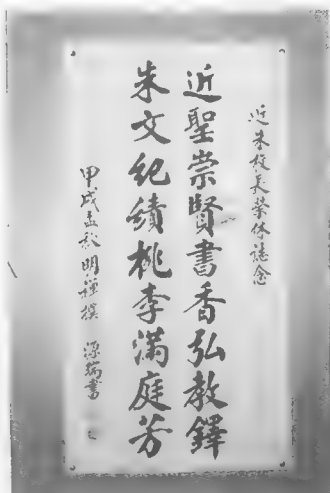 近朱校長榮休誌念
近聖崇賢書香弘教鐸
朱文紀績桃李滿庭芳
甲戌孟秋 明種撰 源瑞書